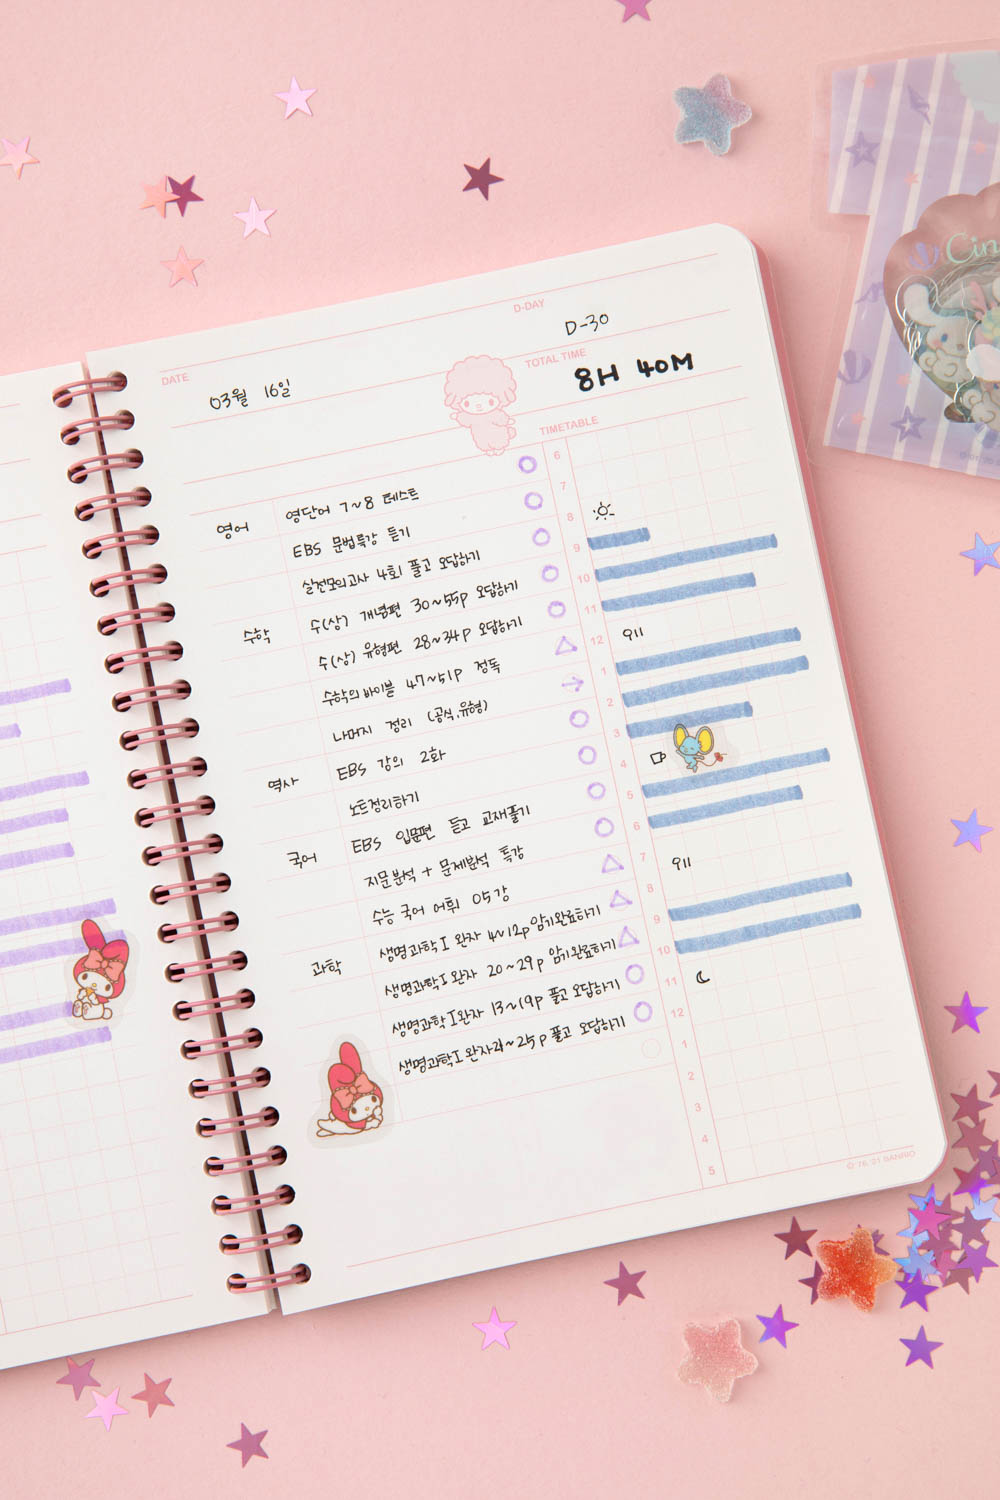 D-DAY
D-30
DATE
03월 16일
TOTAL TIME
8H 40M
TIMETABLE
영어 영단어 7~8 테스트
EBS 문법특강 듣기
실전모의고사 4회 풀고 오답하기
수학 수(상) 개념편 30~55p 오답하기
수(상) 유형편 28~34p 오답하기
수학의 바이블 47~51p 정독
나머지 정리 (공식,유형)
역사 EBS 강의 2화
노트정리하기
국어 EBS 입문편 듣고 교재풀기
지문분석 + 문제분석 특강
수능 국어 어휘 05강
과학 생명과학I 완자 4~12p 암기완료하기
생명과학I 완자 20~29p 암기완료하기
생명과학I 완자 13~19p 풀고 오답하기
생명과학I 완자 ~25p 풀고 오답하기
6
7
8
9
10
11
12
1
2
3
4
5
6
7
8
9
10
11
12
1
2
3
4
5
밥
밥
© '76, '21 SANRIO
Cin